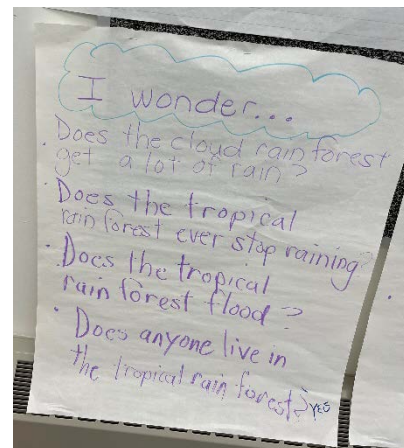 I wonder...
• Does the cloud rain forest
get a lot of rain?
• Does the tropical
rain forest ever stop raining?
• Does the tropical
rain forest flood?
• Does anyone live in
the tropical rain forest? YES